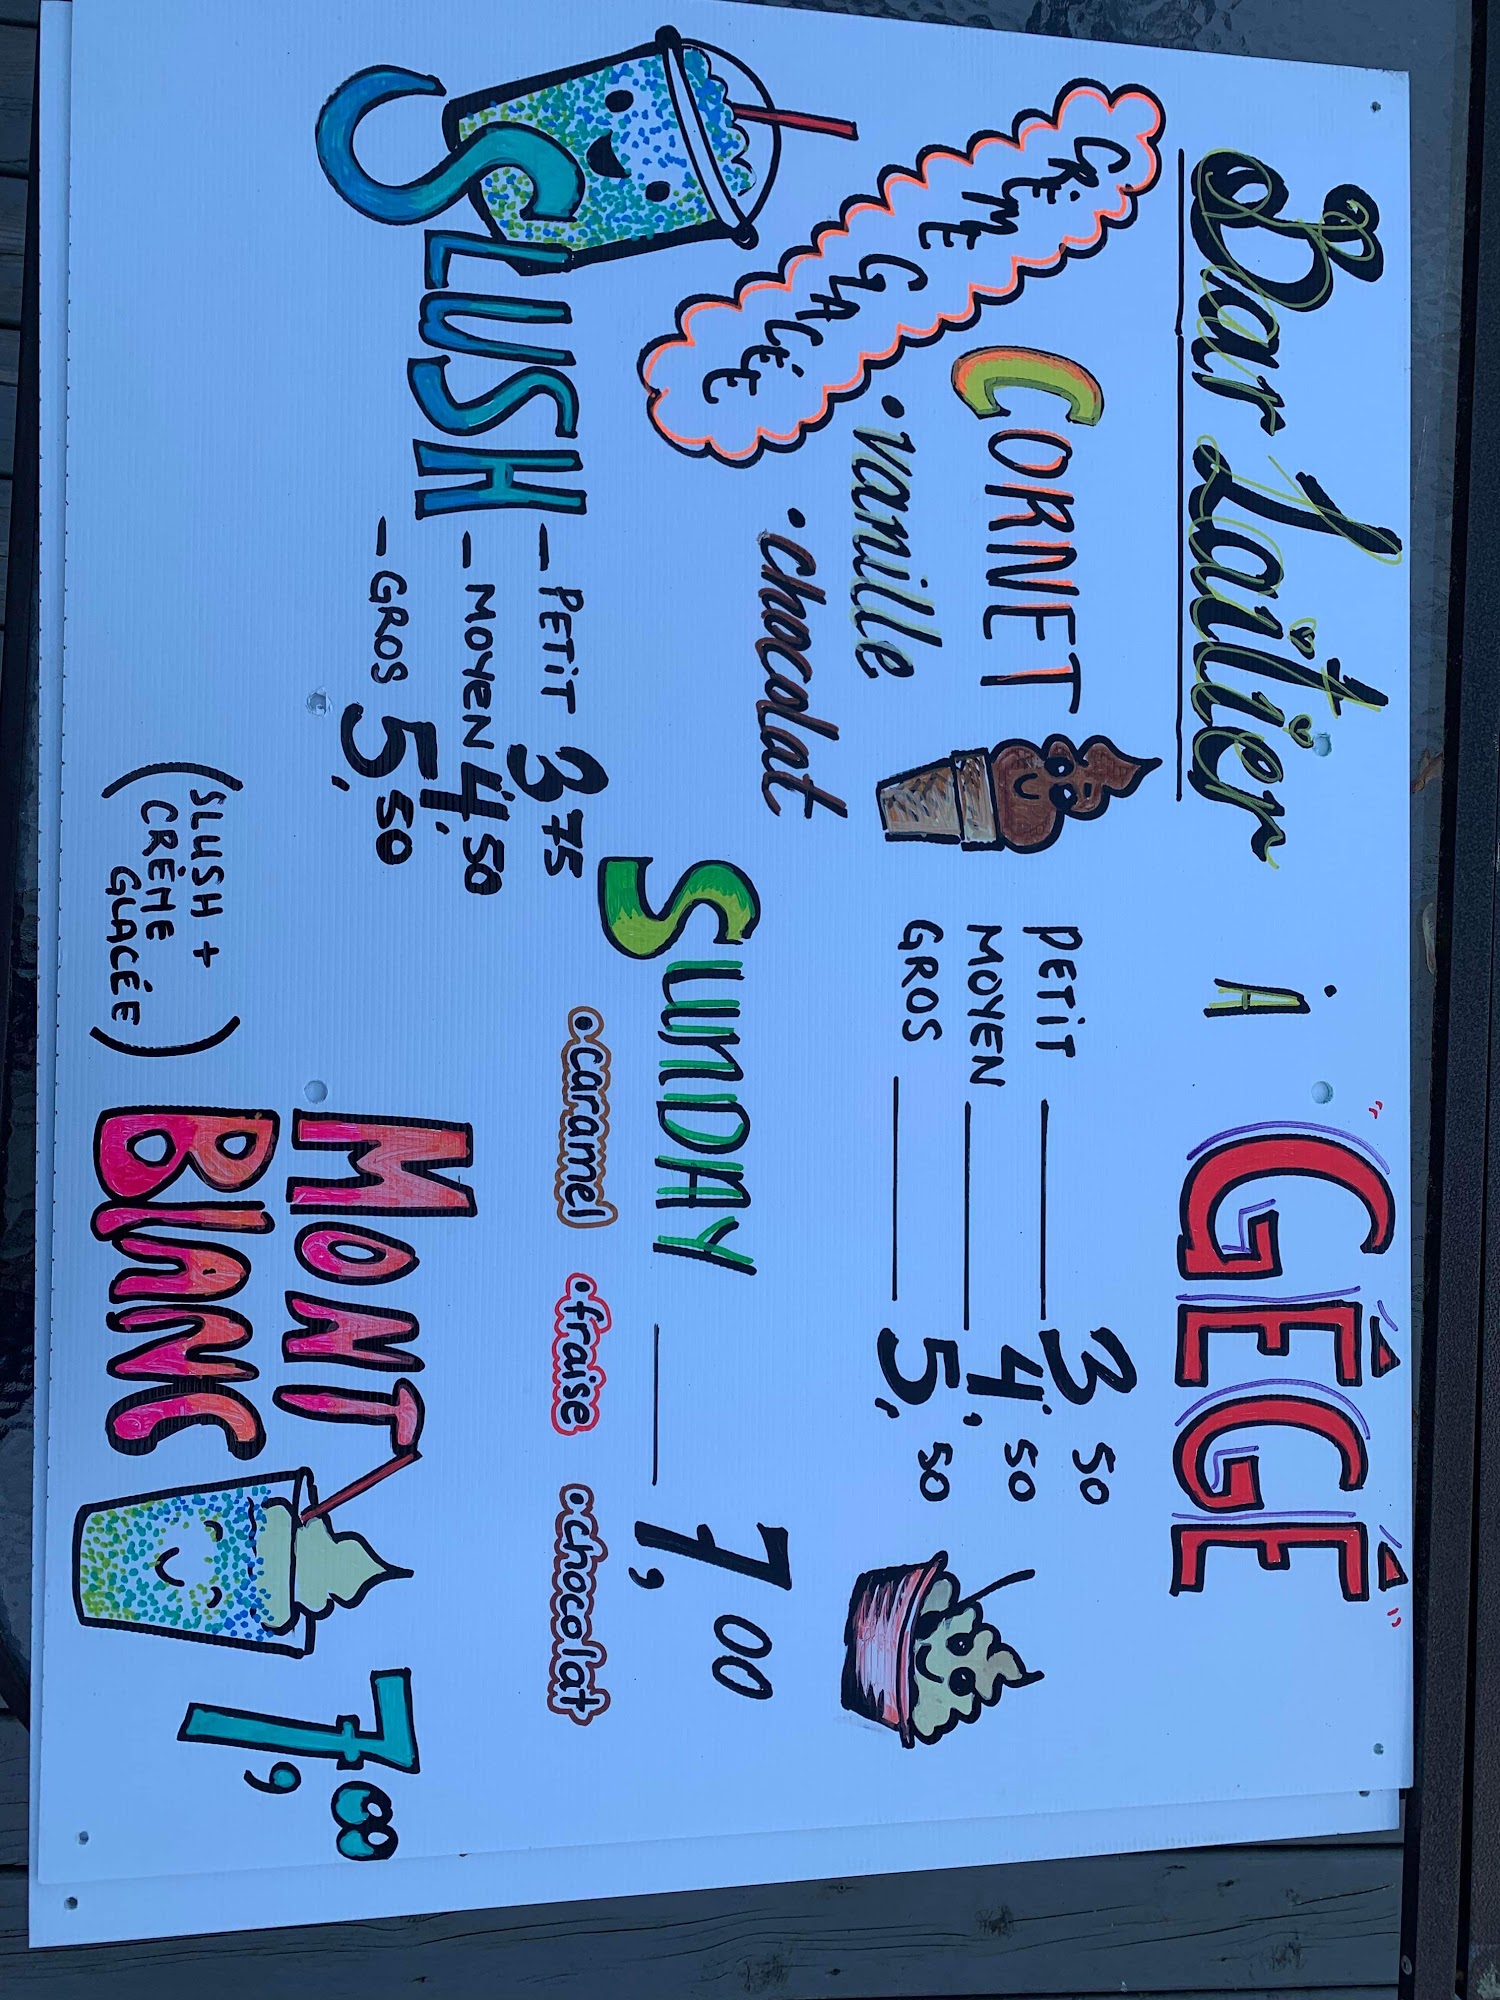 Bar Laitier à "GÉGÉ"
CRÈME GLACÉE
CORNET
• vanille
• chocolat
PETiT 3,50
MOYEN 4,50
GROS 5,50
SUNDAY 7,00
• caramel • fraise • chocolat
SLUSH
- PETiT 3,75
- MOYEN 4,50
- GROS 5,50
MONT
BLANC 7,00
(SLUSH +
CRÈME
GLACÉE)